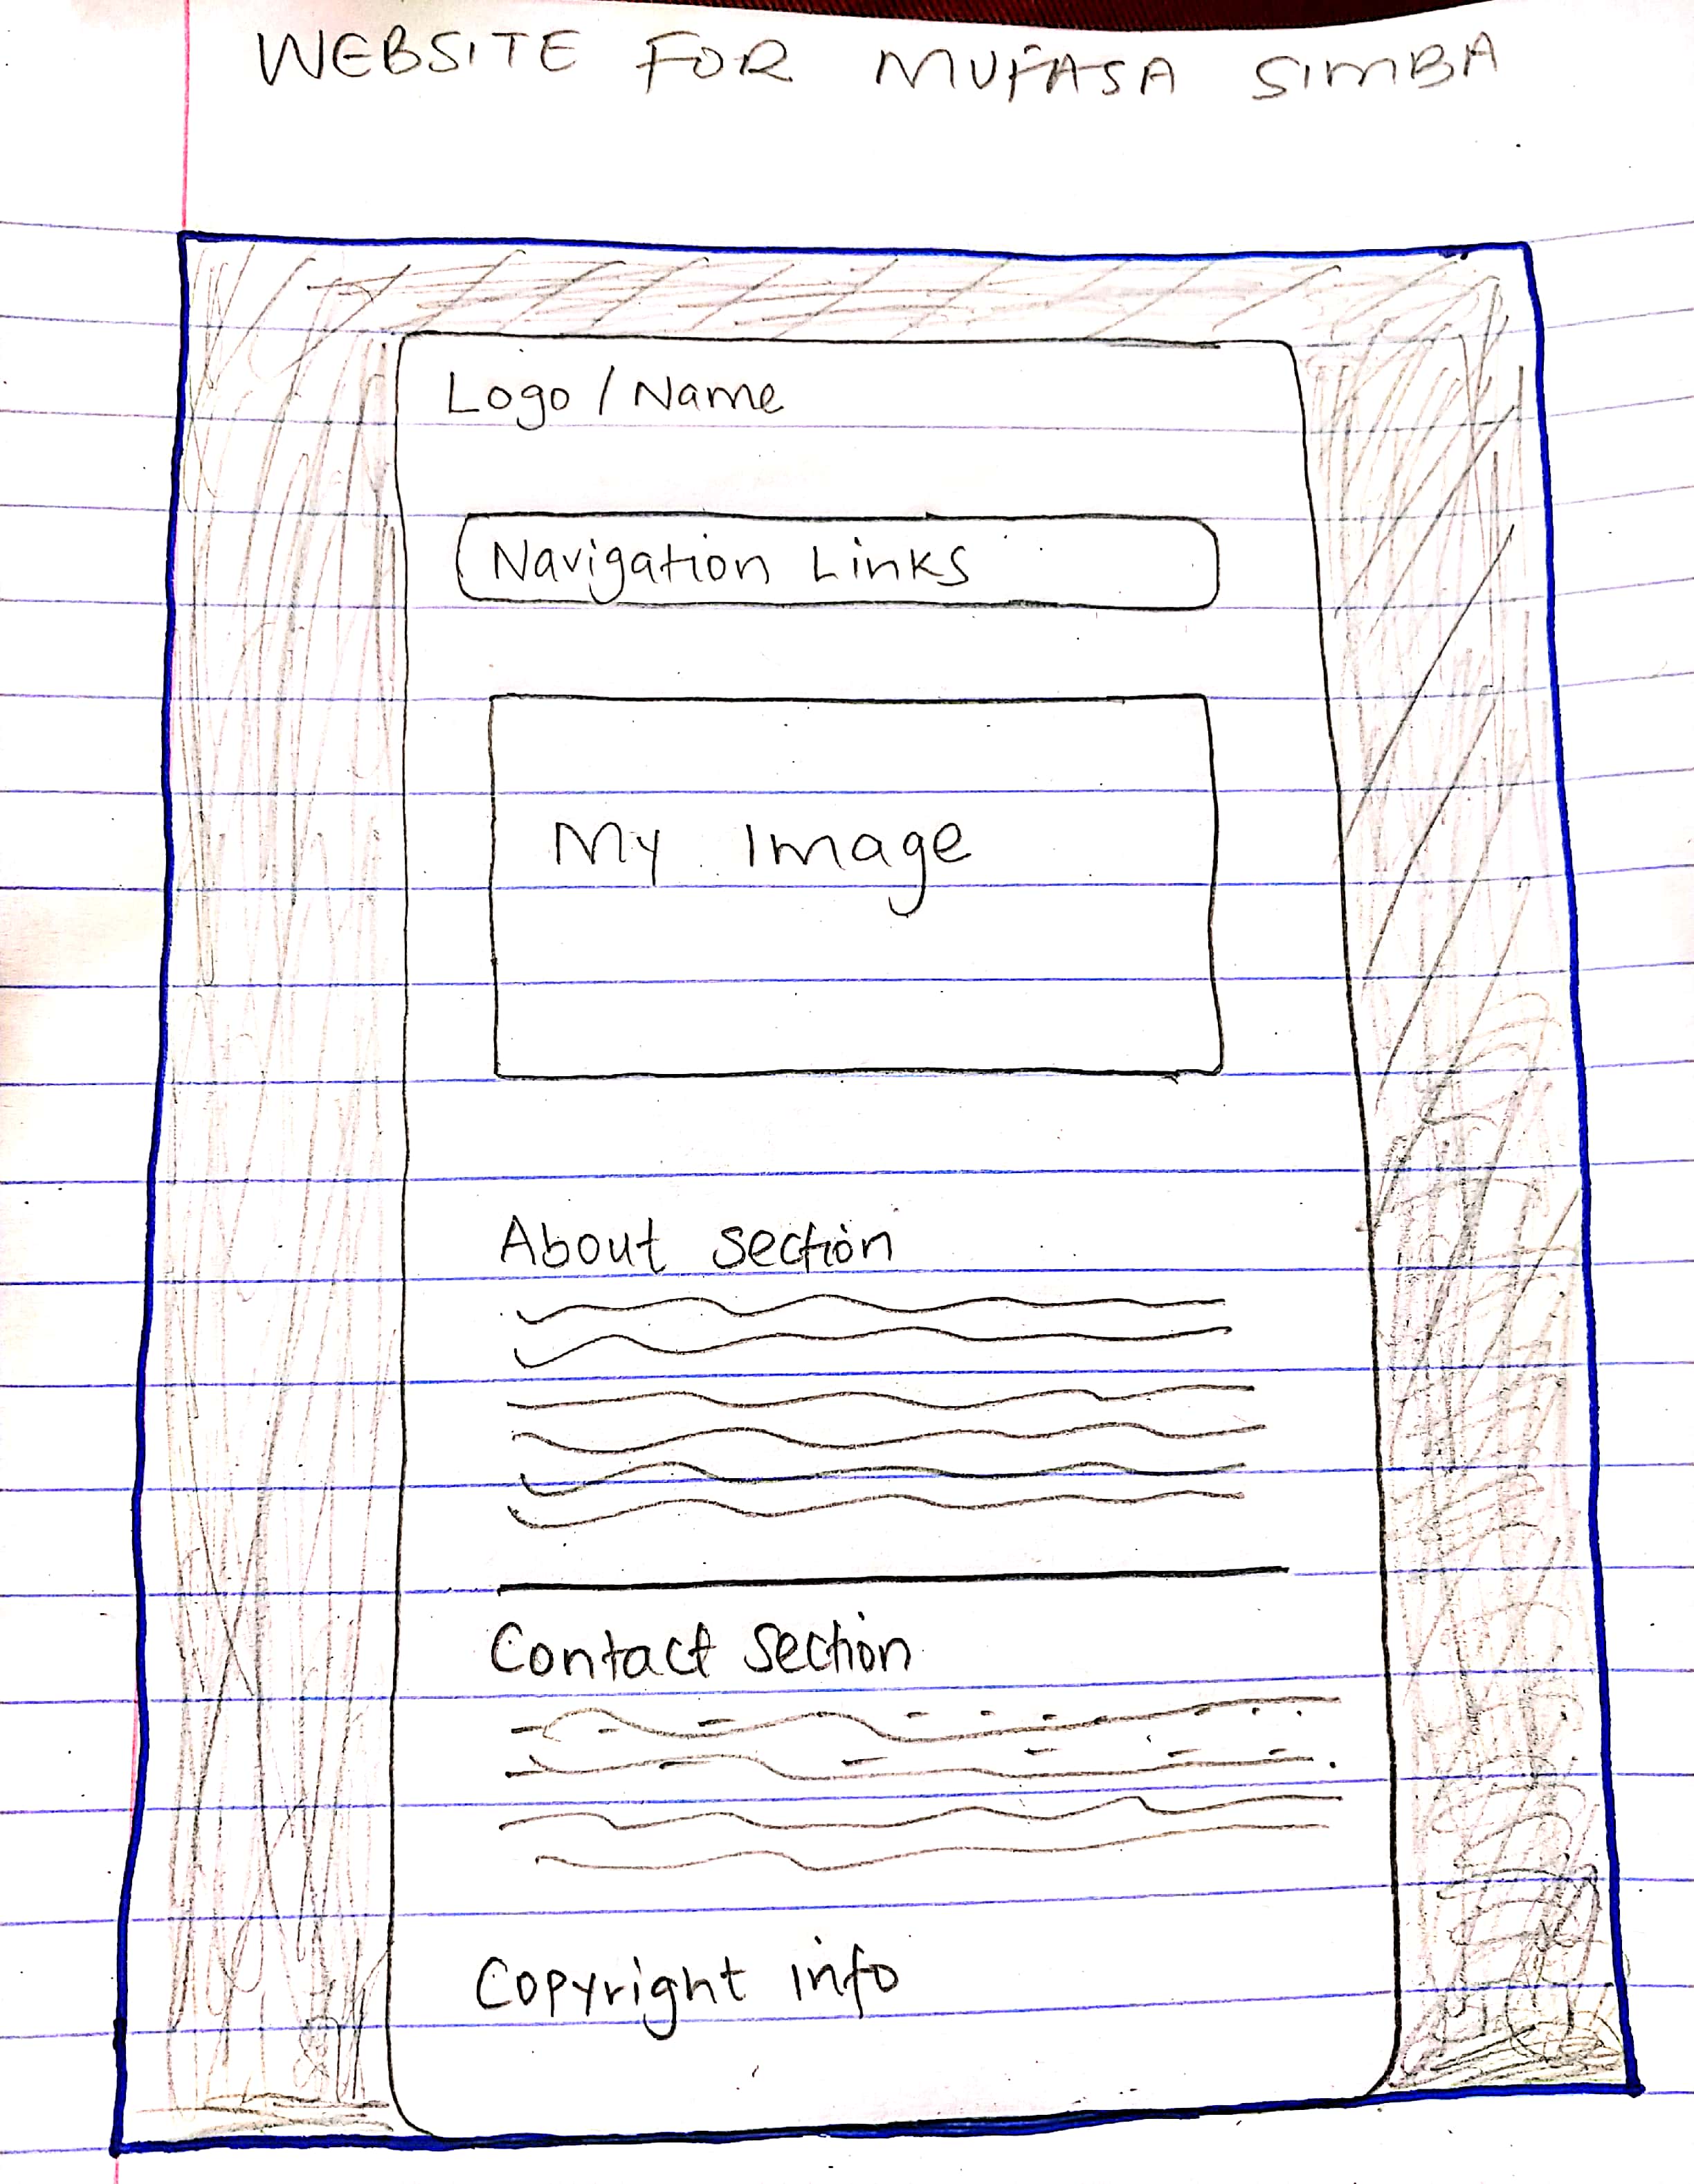 WEBSITE FOR MUFASA SIMBA
Logo / Name
Navigation Links
My Image
About section
Contact section
Copyright info